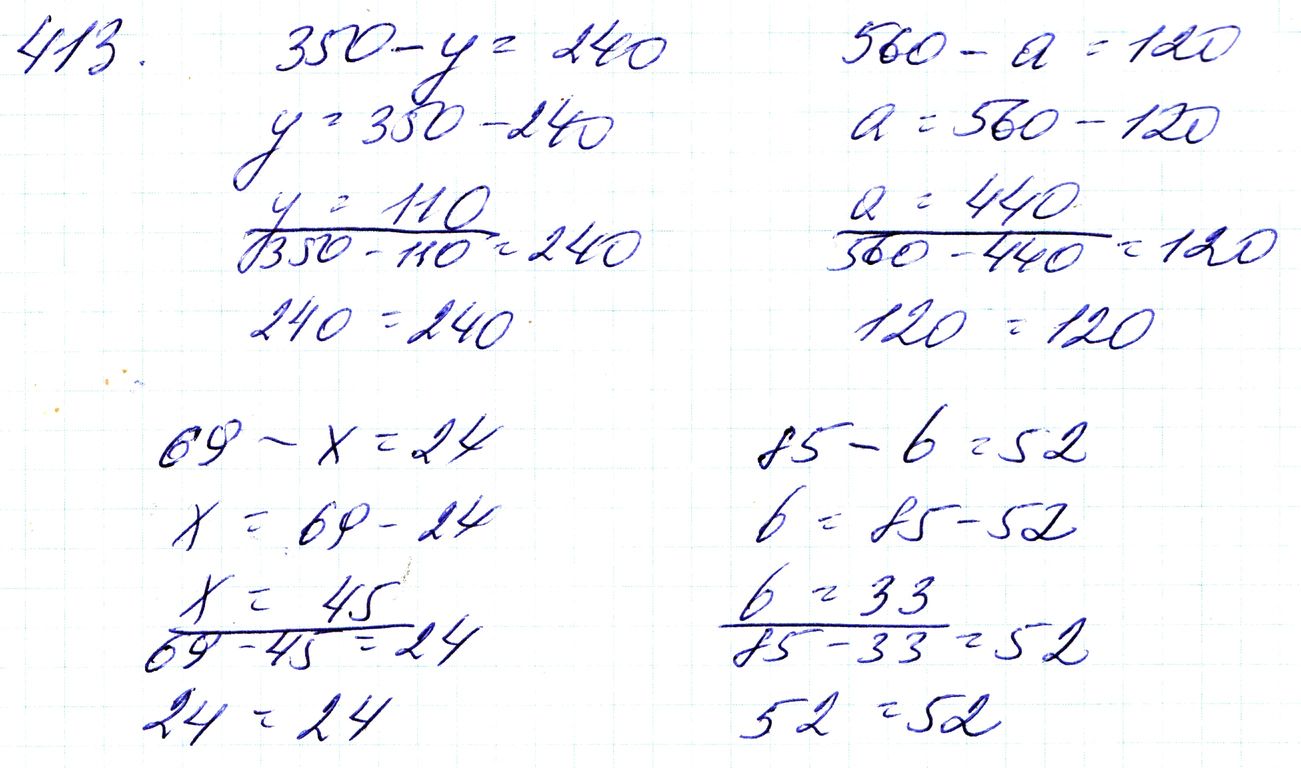 413.
350 - y = 240
y = 350 - 240
y = 110
350 - 110 = 240
240 = 240
560 - a = 120
a = 560 - 120
a = 440
560 - 440 = 120
120 = 120
69 - x = 24
x = 69 - 24
x = 45
69 - 45 = 24
24 = 24
85 - b = 52
b = 85 - 52
b = 33
85 - 33 = 52
52 = 52